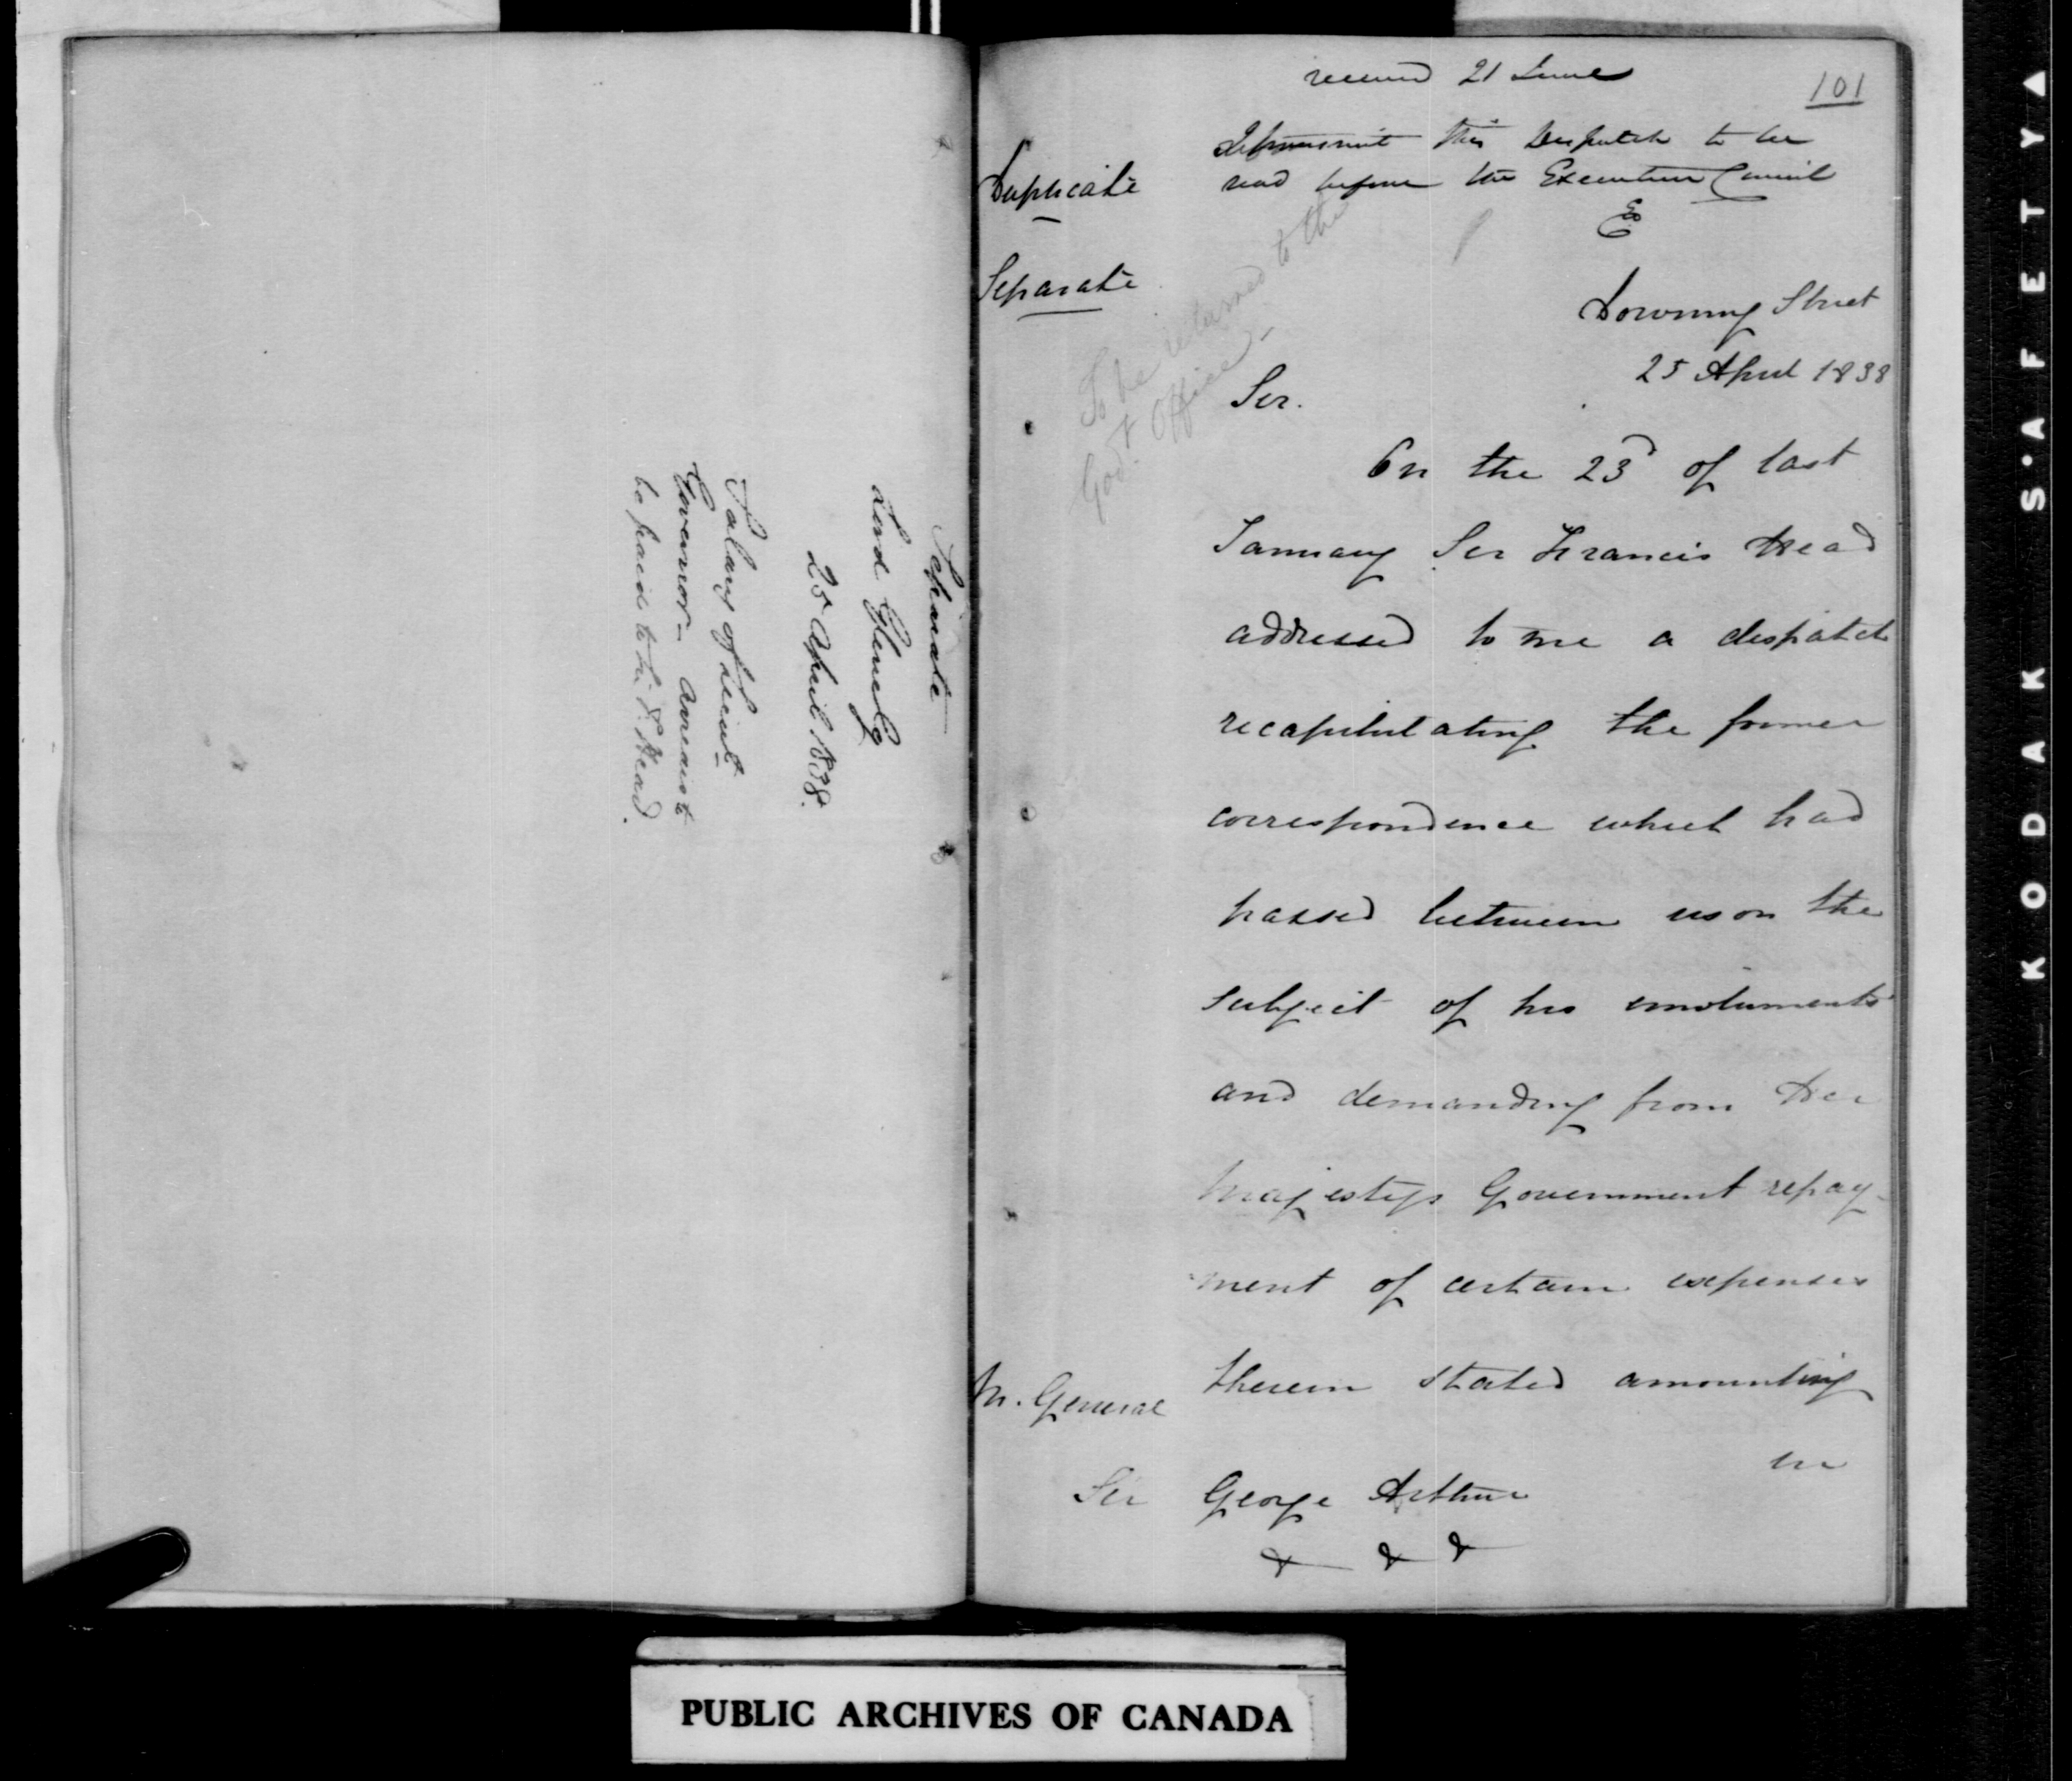 Separate
Lord Glenelg
25 April 1838.
Salary of Lieut
Governor - Arrears to
be paid to Sir F. Head.
received 21 June
101
this Despatch to be
read before the Executive Council
Duplicate
Separate
To be returned to the
Govt Office -
Downing Street
25 April 1838
Sir.
On the 23d of last
January Sir Francis Head
addressed to me a dispatch
recapitulating the former
correspondence which had
passed between us on the
subject of his emoluments
and demanding from Her
Majesty's Government repay-
ment of certain expenses
therein stated amounting
in
M. General
Sir George Arthur
& & &
PUBLIC ARCHIVES OF CANADA
KODAK S'AFETY ▲